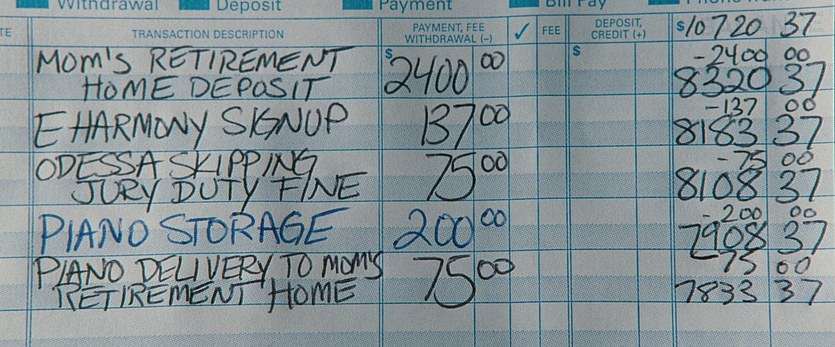 Withdrawal Deposit Payment Bill Pay
TE TRANSACTION DESCRIPTION PAYMENT, FEE WITHDRAWAL (–) ✓ FEE DEPOSIT, CREDIT (+) $10720 37
MOM'S RETIREMENT $2400 00 $ -2400 00
HOME DEPOSIT 8320 37
E HARMONY SIGNUP 137 00 -137 00
8183 37
ODESSA SKIPPING 75 00 -75 00
JURY DUTY FINE 8108 37
PIANO STORAGE 200 00 -200 00
7908 37
PIANO DELIVERY TO MOM'S 75 00 75 00
RETIREMENT HOME 7833 37